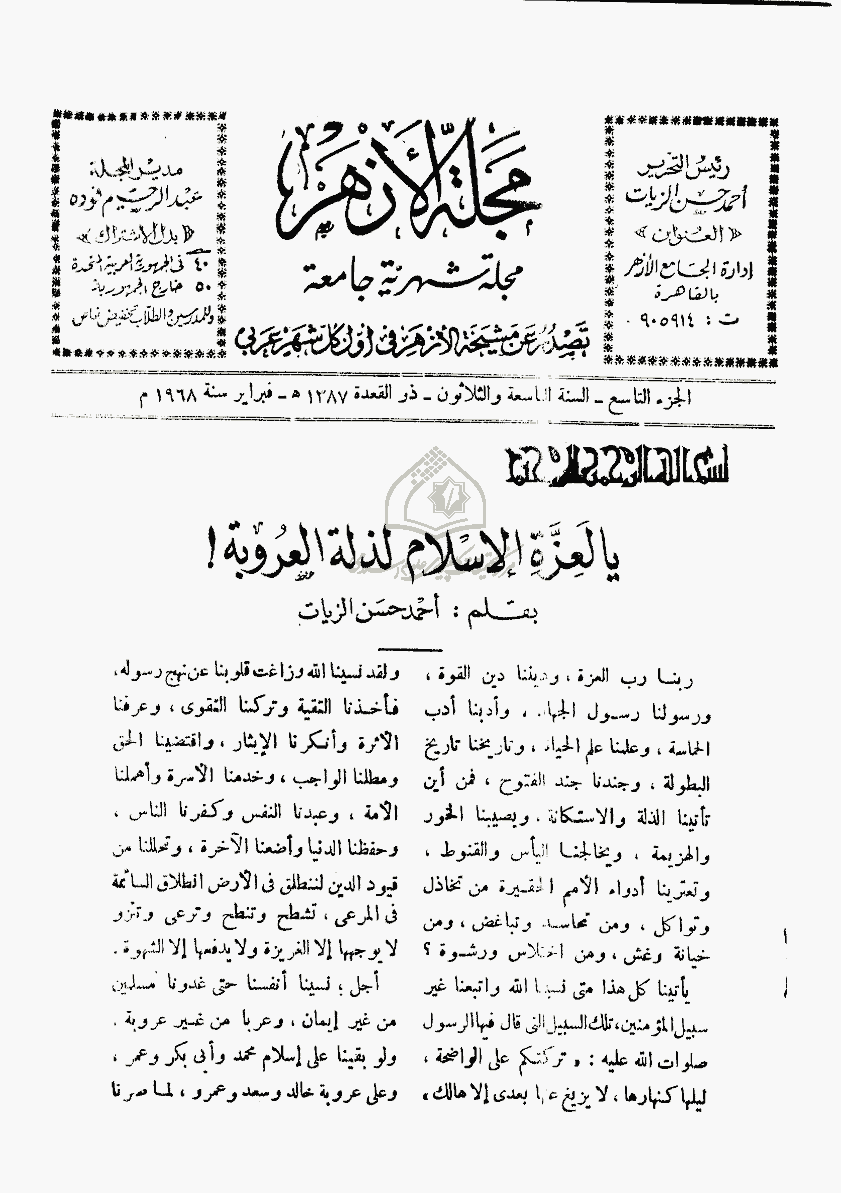 رئيس التحرير
أحمد حسن الزيات
«العنوان»
إدارة الجامع الأزهر
بالقاهرة
ت : ٩٠٥٩١٤
مجلة الأزهر
مجلة شهرية جامعة
تصدر عن مشيخة الأزهر في أول كل شهر عربي
مدير المجلة
عبد الرحيم فوده
«بدل الاشتراك»
٤٠ في الجمهورية العربية المتحدة
٥٠ خارج الجمهورية
وللمدرسين والطلاب تخفيض خاص
الجزء التاسع ـ السنة التاسعة والثلاثون ـ ذو القعدة ١٣٨٧ هـ ـ فبراير سنة ١٩٦٨ م
بسم الله الرحمن الرحيم
يا لَعِزَّةِ الإسْلام لذلة العروبة !
بقلم : أحمد حسَن الزيات
ربنا رب العزة ، وديننا دين القوة ،
ورسولنا رسول الجهاد ، وأدبنا أدب
الحماسة ، وعلمنا علم الحياة ، وتاريخنا تاريخ
البطولة ، وجندنا جند الفتوح ، فمن أين
تأتينا الذلة والاستكانة ، ويصيبنا الخور
والهزيمة ، ويخالجنا اليأس والقنوط ،
وتعترينا أدواء الأمم الحقيرة من تخاذل
وتواكل ، ومن تحاسد وتباغض ، ومن
خيانة وغش ، ومن اختلاس ورشوة ؟
يأتينا كل هذا متى نسينا الله واتبعنا غير
سبيل المؤمنين ، تلك السبيل التى قال فيها الرسول
صلوات الله عليه : « تركتكم على الواضحة ،
ليلها كنهارها ، لا يزيغ عنها بعدى إلا هالك »
ولقد نسينا الله وزاغت قلوبنا عن نهج رسوله ،
فأخذنا التقية وتركنا التقوى ، وعرفنا
الأثرة وأنكرنا الإيثار ، واقتضينا الحق
ومطلنا الواجب ، وخدمنا الأسرة وأهملنا
الأمة ، وعبدنا النفس وكفرنا الناس ،
وحفظنا الدنيا وأضعنا الآخرة ، وتحللنا من
قيود الدين لننطلق فى الأرض انطلاق السائمة
فى المرعى ، تشطح وتنطح وترعى وتنزو
لا يوجهها إلا الغريزة ولا يدفعها إلا الشهوة .
أجل ؛ نسينا أنفسنا حتى غدونا مسلمين
من غير إيمان ، وعربا من غير عروبة .
ولو بقينا على إسلام محمد وأبى بكر وعمر ،
وعلى عروبة خالد وسعد وعمرو ، لما صرنا